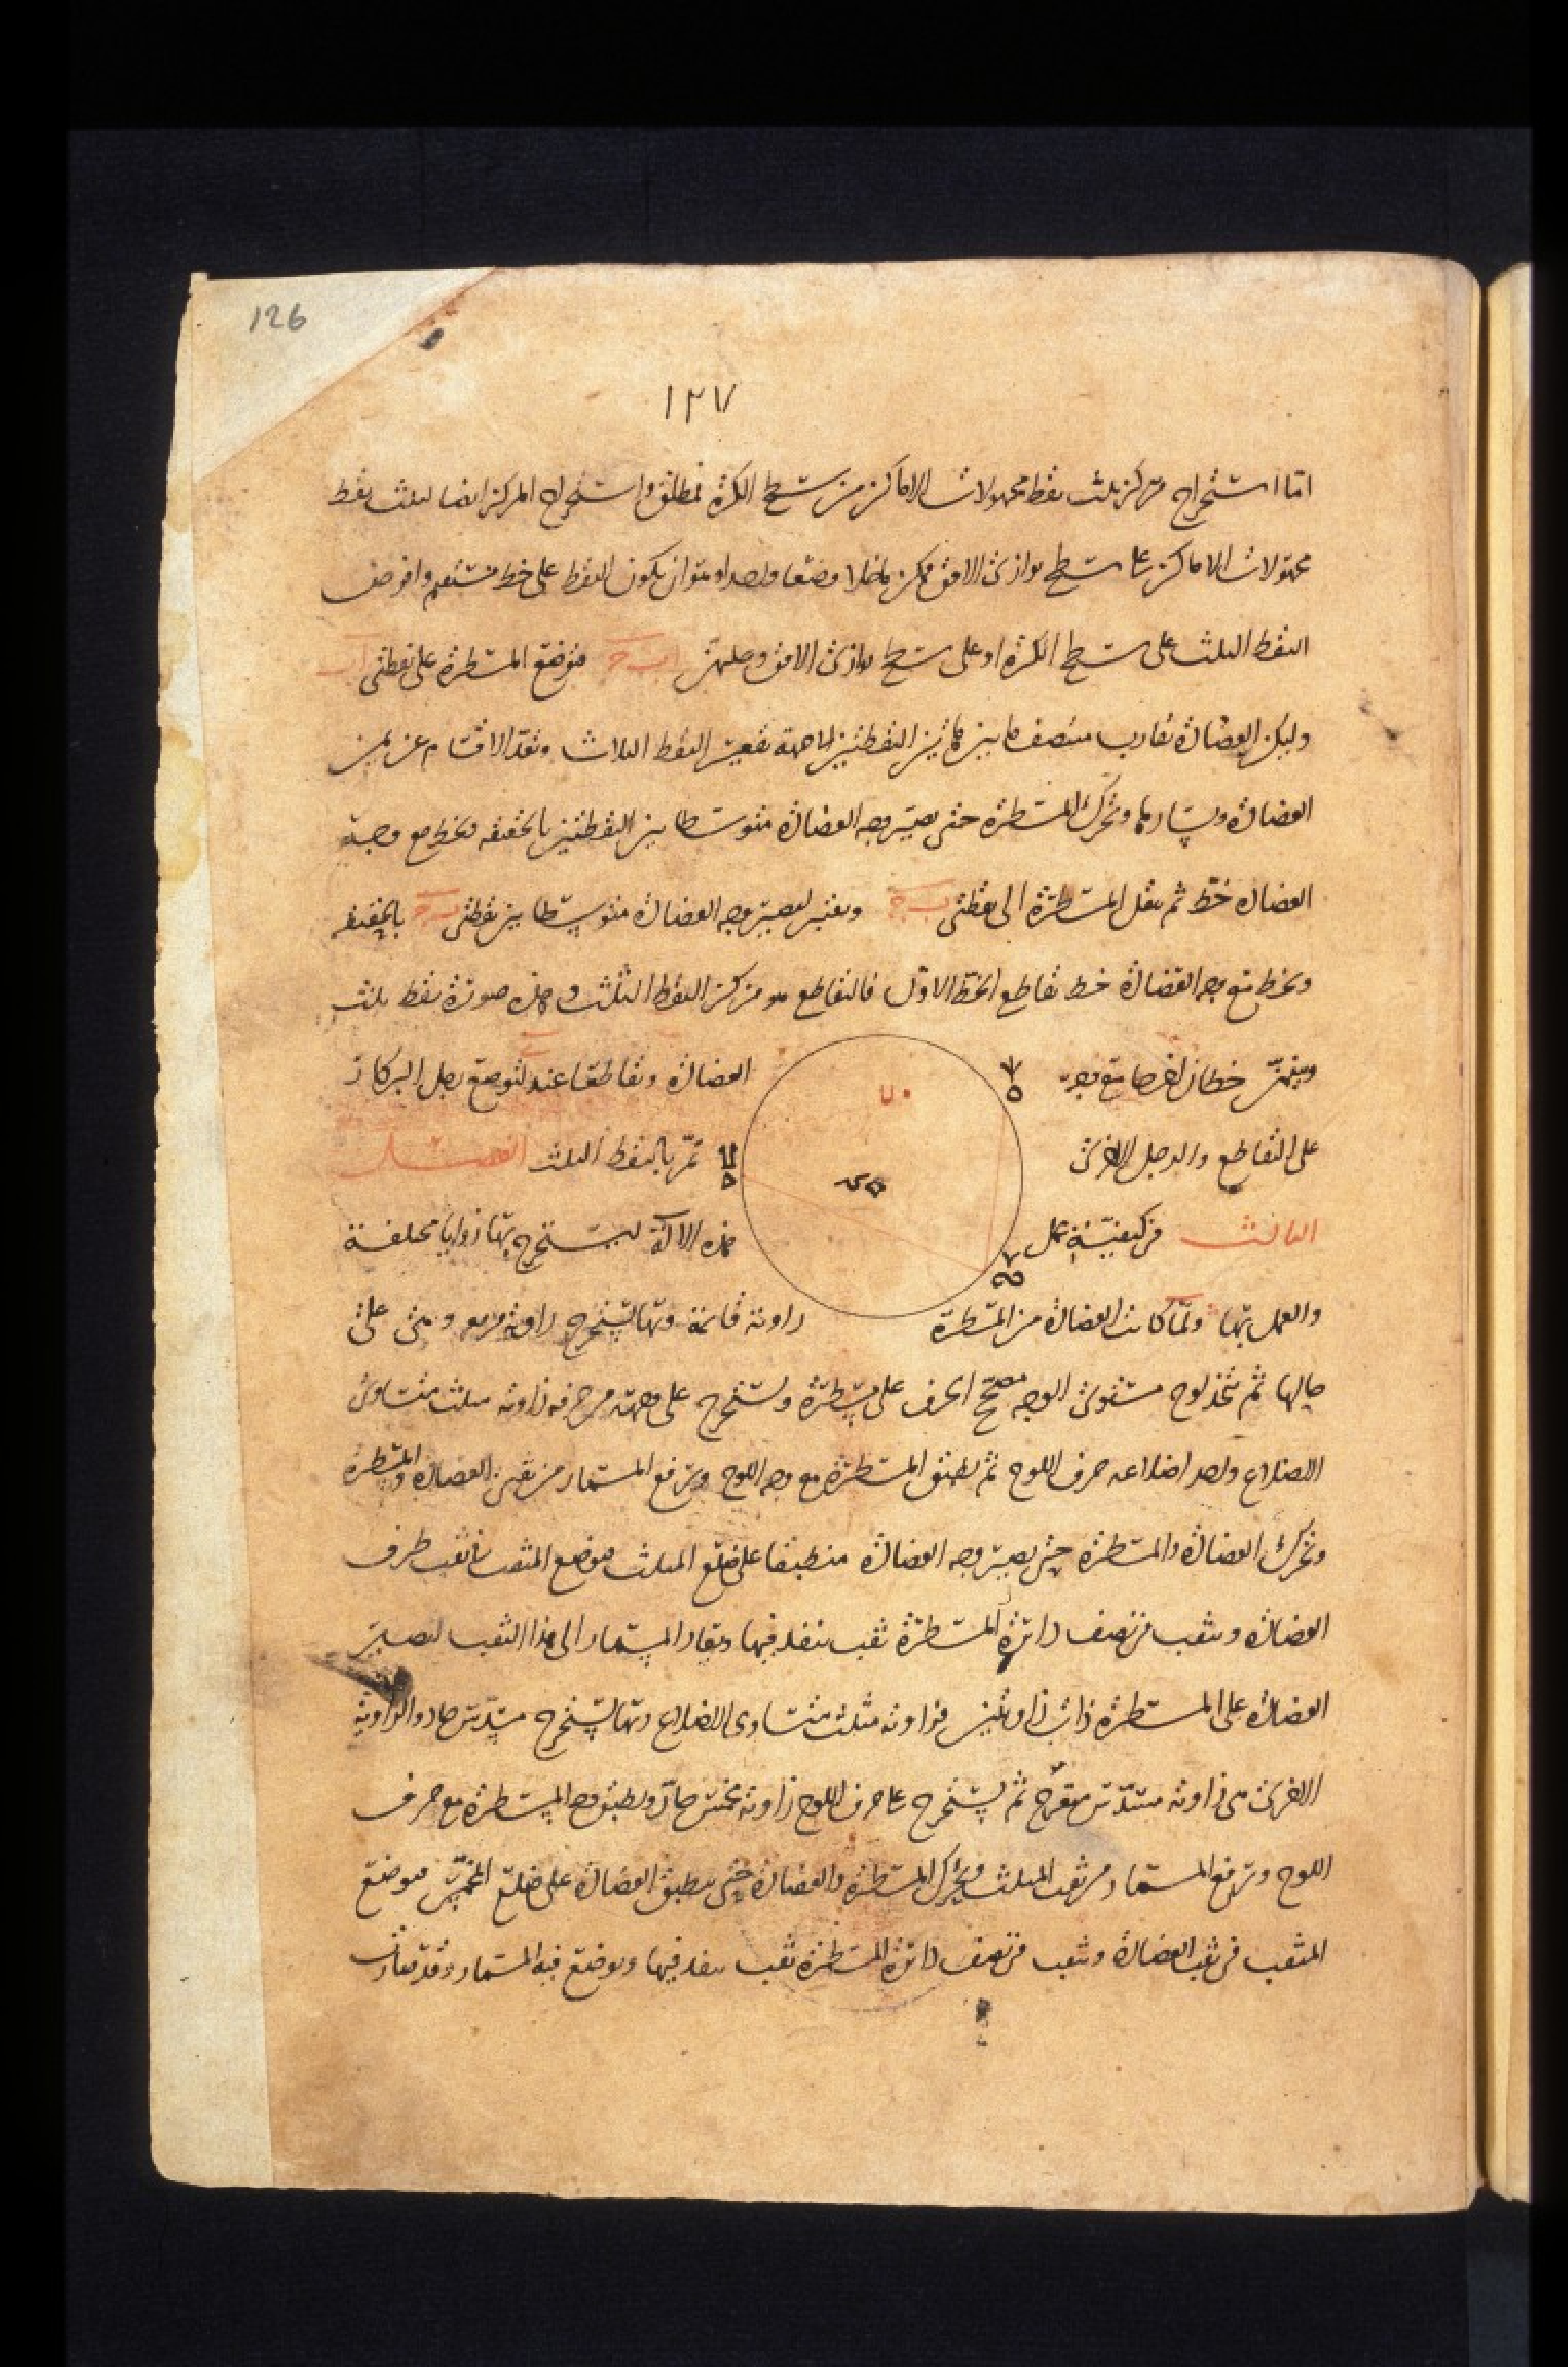 126
١٢٧
اما استخراج مركز ثلث نقط مجهولات الاماكن من سطح الكرة فمطلق واستخراج المركز ايضا لثلث نقط
مجهولات الاماكن على سطح يوازى الافق ممكن ما خلا وضعا واحدا وهو ان يكون النقط على خط مستقيم وافرض
النقط الثلث على سطح الكرة او على سطح يوازى الافق وعليهن ا ب ج فتوضع المسطرة على نقطتى ا ب
وليكن العضادة تقارب منتصف ما بين هاتين النقطتين الى جهة تقعير النقط الثلاث وتعد الاقسام عن يمين
العضادة ويسارها وتحرك المسطرة حتى يصير وجه العضادة متوسطا بين النقطتين بالحقيقة ونخط مع وجه
العضادة خط ثم ننقل المسطرة الى نقطتى ب ج ونعتبر ليصير وجه العضادة متوسطا بين نقطتى ب ج بالحقيقة
ونخط مع وجه العضادة خط يقاطع الخط الاول فالتقاطع هو مركز النقط الثلث وهذه صورة نقط ثلث
وبينهن خطان اخرجا مع وجه العضادة وتقاطعا عند ليوضع رجل البركار
على التقاطع والرجل الاخرى تمر بالنقط الثلث الفصل
الثالث فى كيفية عمل هذه الالة ليستخرج بها زوايا مختلفة
والعمل بها ولما كانت العضادة من المسطرة زاوية قائمة وبها يستخرج زاوية مربع وهى على
حالها ثم نتخذ لوح مستوى الوجه مصحح الحرف على مسطرة ونستخرج على وجهه من حرفه زاوية مثلث متساوى
الاضلاع واحد اضلاعه حرف اللوح ثم نطبق المسطرة مع وجه اللوح ونرفع المسمار من ثقبى العضادة والمسطرة
ونحرك العضادة والمسطرة حتى يصير وجه العضادة منطبقا على ضلع المثلث فيوضع المثقب فى ثقب طرف
العضادة ونثقب فى نصف دائرة المسطرة ثقب ينفذ فيها ويعاد المسمار الى هذا الثقب ليصير
العضادة على المسطرة ذات زاويتين فزاوية مثلث متساوى الاضلاع وبها يستخرج مسدس حاد والزاوية
الاخرى هى زاوية مسدس منفرج ثم يستخرج على حرف اللوح زاوية مخمس حاد ونطبق وجه المسطرة مع حرف
اللوح ونرفع المسمار من ثقب المثلث ونحرك المسطرة والعضادة حتى ينطبق العضادة على ضلع المخمس فيوضع
المثقب فى ثقب العضادة ونثقب فى نصف دائرة المسطرة ثقب ينفذ فيها ويوضع فيه المسمار وقد